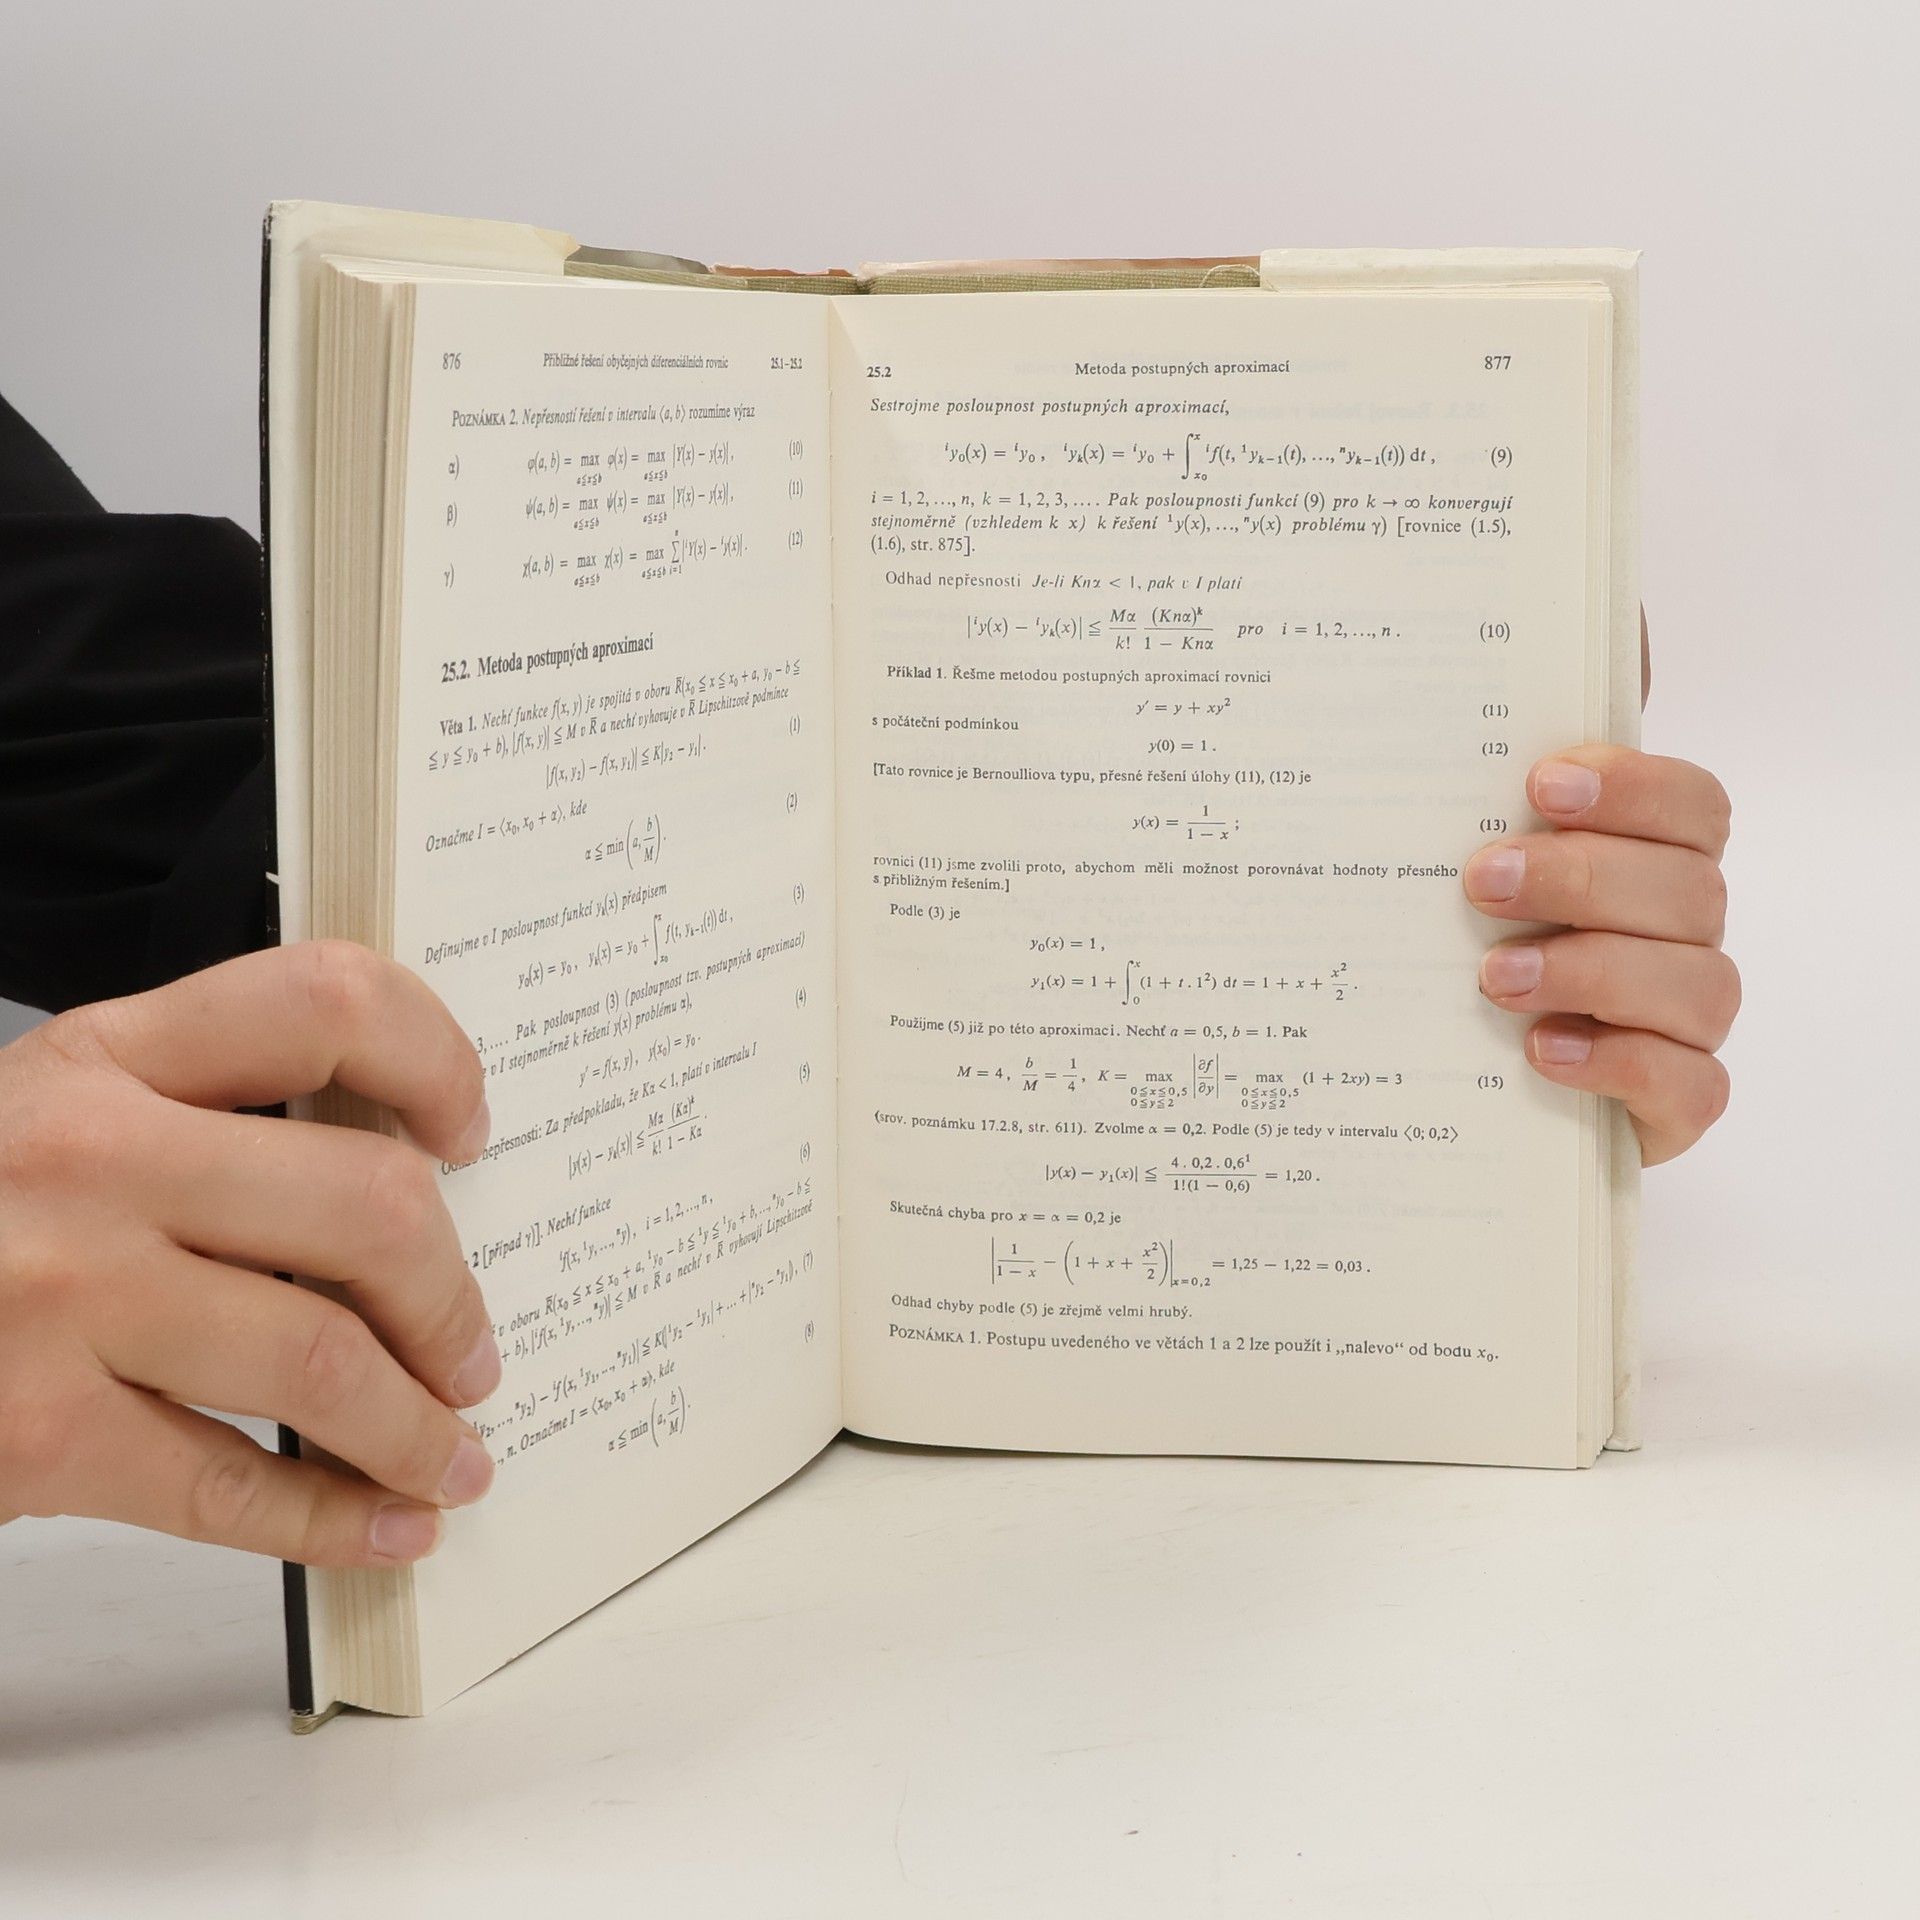 876 Přibližné řešení obyčejných diferenciálních rovnic 25.1–25.2
POZNÁMKA 2. Nepřesností řešení v intervalu ⟨a, b⟩ rozumíme výraz
α) φ(a, b) = max φ(x) = max |Y(x) − y(x)|, (10)
a≦x≦b a≦x≦b
β) ψ(a, b) = max ψ(x) = max |Y(x) − y(x)|, (11)
a≦x≦b a≦x≦b
γ) χ(a, b) = max χ(x) = max ∑ |ⁱY(x) − ⁱy(x)|. (12)
a≦x≦b a≦x≦b i=1
25.2. Metoda postupných aproximací
Věta 1. Nechť funkce f(x, y) je spojitá v oboru R̄(x₀ ≦ x ≦ x₀ + a, y₀ − b ≦
≦ y ≦ y₀ + b), |f(x, y)| ≦ M v R̄ a nechť vyhovuje v R̄ Lipschitzově podmínce
|f(x, y₂) − f(x, y₁)| ≦ K|y₂ − y₁|. (1)
Označme I = ⟨x₀, x₀ + α⟩, kde
α ≦ min (a, b/M). (2)
Definujme v I posloupnost funkcí yₖ(x) předpisem
y₀(x) = y₀, yₖ(x) = y₀ + ∫ₓ₀ˣ f(t, yₖ₋₁(t)) dt, (3)
3, .... Pak posloupnost (3) (posloupnost tzv. postupných aproximací)
v I stejnoměrně k řešení y(x) problému α),
y′ = f(x, y), y(x₀) = y₀. (4)
nepřesnosti: Za předpokladu, že Kα < 1, platí v intervalu I
|y(x) − yₖ(x)| ≦ Mα/k! (Kα)ᵏ/(1 − Kα). (5)
2 [případ γ)]. Nechť funkce
ⁱf(x, ¹y, ..., ⁿy), i = 1, 2, ..., n, (6)
v oboru R̄(x₀ ≦ x ≦ x₀ + a, ¹y₀ − b ≦ ¹y ≦ ¹y₀ + b, ..., ⁿy₀ − b ≦
+ b), |ⁱf(x, ¹y, ..., ⁿy)| ≦ M v R̄ a nechť v R̄ vyhovují Lipschitzově
¹y₂, ..., ⁿy₂) − ⁱf(x, ¹y₁, ..., ⁿy₁)| ≦ K(|¹y₂ − ¹y₁| + ... + |ⁿy₂ − ⁿy₁|), (7)
n. Označme I = ⟨x₀, x₀ + α⟩, kde
α ≦ min (a, b/M). (8)
25.2 Metoda postupných aproximací 877
Sestrojme posloupnost postupných aproximací,
ⁱy₀(x) = ⁱy₀, ⁱyₖ(x) = ⁱy₀ + ∫ₓ₀ˣ ⁱf(t, ¹yₖ₋₁(t), ..., ⁿyₖ₋₁(t)) dt, (9)
i = 1, 2, ..., n, k = 1, 2, 3, .... Pak posloupnosti funkcí (9) pro k → ∞ konvergují
stejnoměrně (vzhledem k x) k řešení ¹y(x), ..., ⁿy(x) problému γ) [rovnice (1.5),
(1.6), str. 875].
Odhad nepřesnosti Je-li Knα < 1, pak v I platí
|ⁱy(x) − ⁱyₖ(x)| ≦ Mα/k! (Knα)ᵏ/(1 − Knα) pro i = 1, 2, ..., n. (10)
Příklad 1. Řešme metodou postupných aproximací rovnici
y′ = y + xy² (11)
s počáteční podmínkou
y(0) = 1. (12)
[Tato rovnice je Bernoulliova typu, přesné řešení úlohy (11), (12) je
y(x) = 1/(1 − x); (13)
rovnici (11) jsme zvolili proto, abychom měli možnost porovnávat hodnoty přesného
s přibližným řešením.]
Podle (3) je
y₀(x) = 1,
y₁(x) = 1 + ∫₀ˣ (1 + t . 1²) dt = 1 + x + x²/2.
Použijme (5) již po této aproximaci. Nechť a = 0,5, b = 1. Pak
M = 4, b/M = 1/4, K = max |∂f/∂y| = max (1 + 2xy) = 3 (15)
0≦x≦0,5 0≦x≦0,5
0≦y≦2 0≦y≦2
(srov. poznámku 17.2.8, str. 611). Zvolme α = 0,2. Podle (5) je tedy v intervalu ⟨0; 0,2⟩
|y(x) − y₁(x)| ≦ 4 . 0,2 . 0,6¹/1!(1 − 0,6) = 1,20.
Skutečná chyba pro x = α = 0,2 je
|1/(1 − x) − (1 + x + x²/2)|ₓ₌₀,₂ = 1,25 − 1,22 = 0,03.
Odhad chyby podle (5) je zřejmě velmi hrubý.
POZNÁMKA 1. Postupu uvedeného ve větách 1 a 2 lze použít i „nalevo“ od bodu x₀.